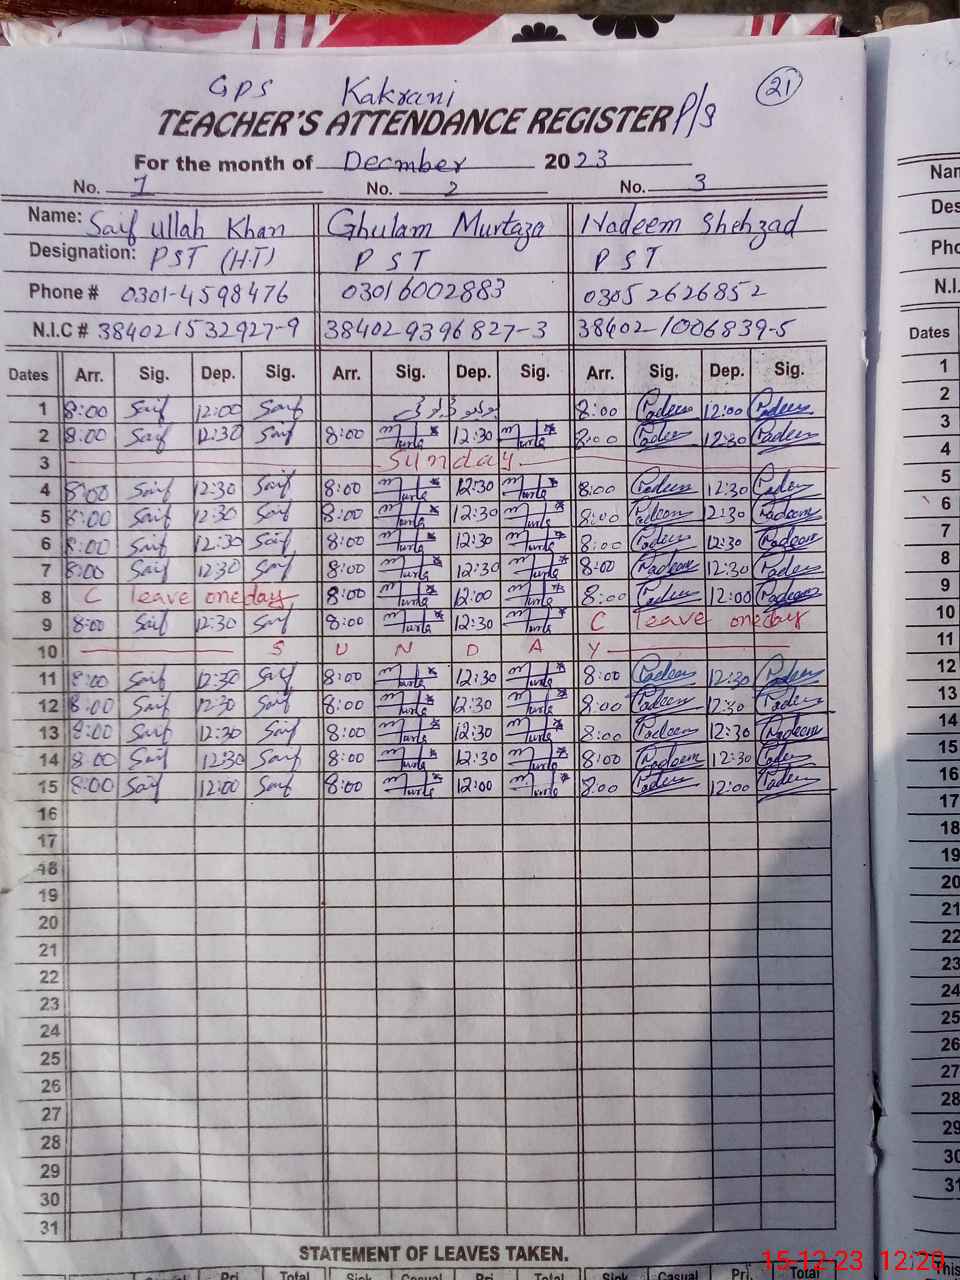 21
GPS Kakrani
TEACHER'S ATTENDANCE REGISTER P/S
For the month of December 2023
No. 1 No. 2 No. 3
Name: Saif ullah Khan Ghulam Murtaza Nadeem Shehzad
Designation: PST (H.T) PST PST
Phone # 0301-4598476 03016002883 03052626852
N.I.C # 3840215329​27-9 384029396827-3 38402-1006839-5
Dates Arr. Sig. Dep. Sig. Arr. Sig. Dep. Sig. Arr. Sig. Dep. Sig.
1 8:00 Saif 12:00 Saif 8:00 Nadeem 12:00 Nadeem
2 8:00 Saif 12:30 Saif 8:00 Murtaza 12:30 Murtaza 8:00 Nadeem 12:30 Nadeem
3 Sunday
4 8:00 Saif 12:30 Saif 8:00 Murtaza 12:30 Murtaza 8:00 Nadeem 12:30 Nadeem
5 8:00 Saif 12:30 Saif 8:00 Murtaza 12:30 Murtaza 8:00 Nadeem 12:30 Nadeem
6 8:00 Saif 12:30 Saif 8:00 Murtaza 12:30 Murtaza 8:00 Nadeem 12:30 Nadeem
7 8:00 Saif 12:30 Saif 8:00 Murtaza 12:30 Murtaza 8:00 Nadeem 12:30 Nadeem
8 C leave one day 8:00 Murtaza 12:00 Murtaza 8:00 Nadeem 12:00 Nadeem
9 8:00 Saif 12:30 Saif 8:00 Murtaza 12:30 Murtaza C leave one day
10 S U N D A Y
11 8:00 Saif 12:30 Saif 8:00 Murtaza 12:30 Murtaza 8:00 Nadeem 12:30 Nadeem
12 8:00 Saif 12:30 Saif 8:00 Murtaza 12:30 Murtaza 8:00 Nadeem 12:30 Nadeem
13 8:00 Saif 12:30 Saif 8:00 Murtaza 12:30 Murtaza 8:00 Nadeem 12:30 Nadeem
14 8:00 Saif 12:30 Saif 8:00 Murtaza 12:30 Murtaza 8:00 Nadeem 12:30 Nadeem
15 8:00 Saif 12:00 Saif 8:00 Murtaza 12:00 Murtaza 8:00 Nadeem 12:00 Nadeem
16
17
18
19
20
21
22
23
24
25
26
27
28
29
30
31
STATEMENT OF LEAVES TAKEN.
Pri. Total Sick Casual Pri. Total Sick Casual Pri. Total
Dates
1
2
3
4
5
6
7
8
9
10
11
12
13
14
15
16
17
18
19
20
21
22
23
24
25
26
27
28
29
30
31
This
15-12-23 12:20